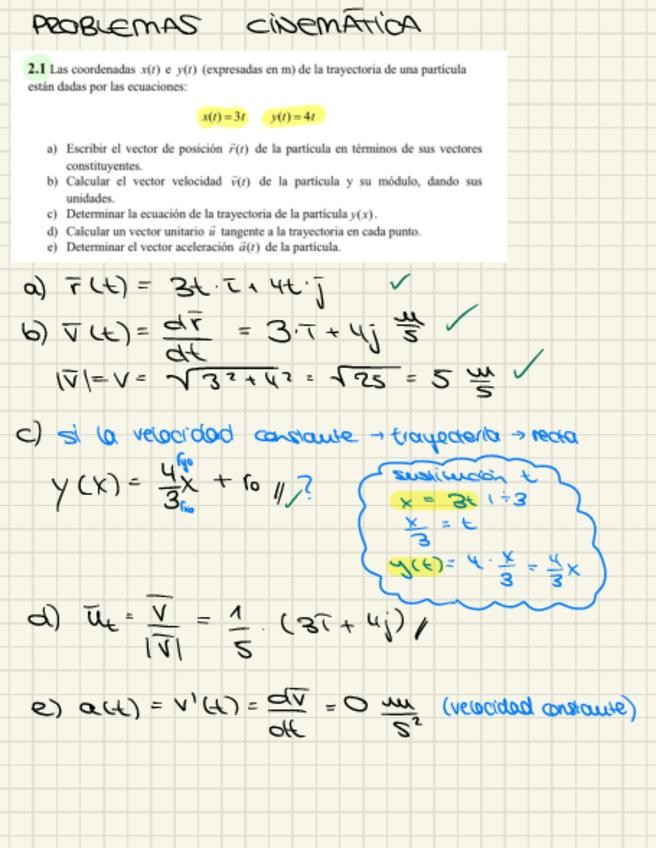 PROBLEMAS CINEMÁTICA
2.1 Las coordenadas x(t) e y(t) (expresadas en m) de la trayectoria de una partícula
están dadas por las ecuaciones:
x(t) = 3t y(t) = 4t
a) Escribir el vector de posición r⃗(t) de la partícula en términos de sus vectores
constituyentes.
b) Calcular el vector velocidad v⃗(t) de la partícula y su módulo, dando sus
unidades.
c) Determinar la ecuación de la trayectoria de la partícula y(x).
d) Calcular un vector unitario u⃗ tangente a la trayectoria en cada punto.
e) Determinar el vector aceleración a⃗(t) de la partícula.
a) r̄(t) = 3t · ī + 4t · j̄ ✓
b) v̄(t) = dr̄/dt = 3 · ī + 4j m/s ✓
|v̄| = v = √(3² + 4²) = √25 = 5 m/s ✓
c) si la velocidad constante → trayectoria → recta
y(x) = 4/3 x + r₀ // ✓ ?
sustitución t
x = 3t | ÷3
x/3 = t
y(t) = 4 · x/3 = 4/3 x
d) ū_t = v̄/|v̄| = 1/5 · (3ī + 4j) //
e) a(t) = v'(t) = dv̄/dt = 0 m/s² (velocidad constante)